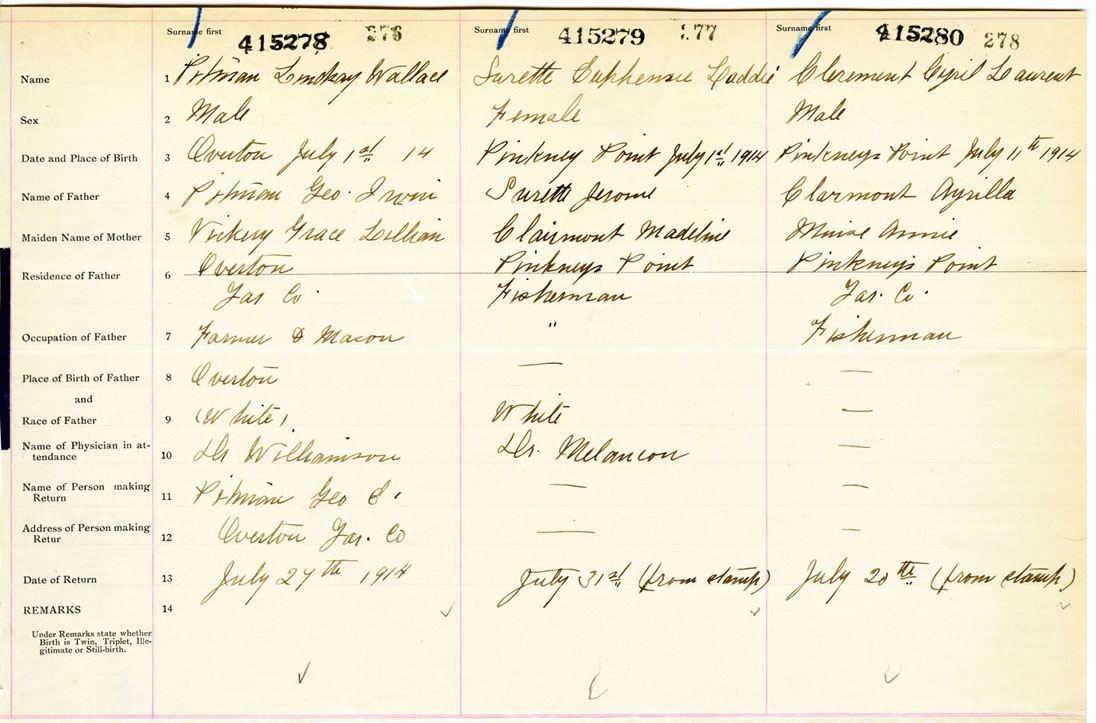 Surname first 415278 276 Surname first 415279 277 Surname first 415280 278
Name 1 Pitman Lindsay Wallace Surette Euphensie Loddie Clerement Cyril Laurent
Sex 2 Male Female Male
Date and Place of Birth 3 Overton July 1st 14 Pinkney Point July 1st 1914 Pinkneys Point July 11th 1914
Name of Father 4 Pitman Geo. Irwin Surette Jerome Clairmont
Maiden Name of Mother 5 Vickery Grace Lillian Clairmont Madeline Annie
Residence of Father 6 Overton Pinkneys Point Pinkneys Point
Yar Co. Fisherman Yar. Co.
Occupation of Father 7 Farmer & Mason " Fisherman
Place of Birth of Father 8 Overton — —
and
Race of Father 9 (White) White —
Name of Physician in at-
tendance 10 Dr Williamson Dr. Melancon —
Name of Person making
Return 11 Pitman Geo — —
Address of Person making
Retur 12 Overton Yar. Co — —
Date of Return 13 July 27th 1914 July 31st (from stamp) July 20th (from stamp)
REMARKS 14
Under Remarks state whether
Birth is Twin, Triplet, Ille-
gitimate or Still-birth.